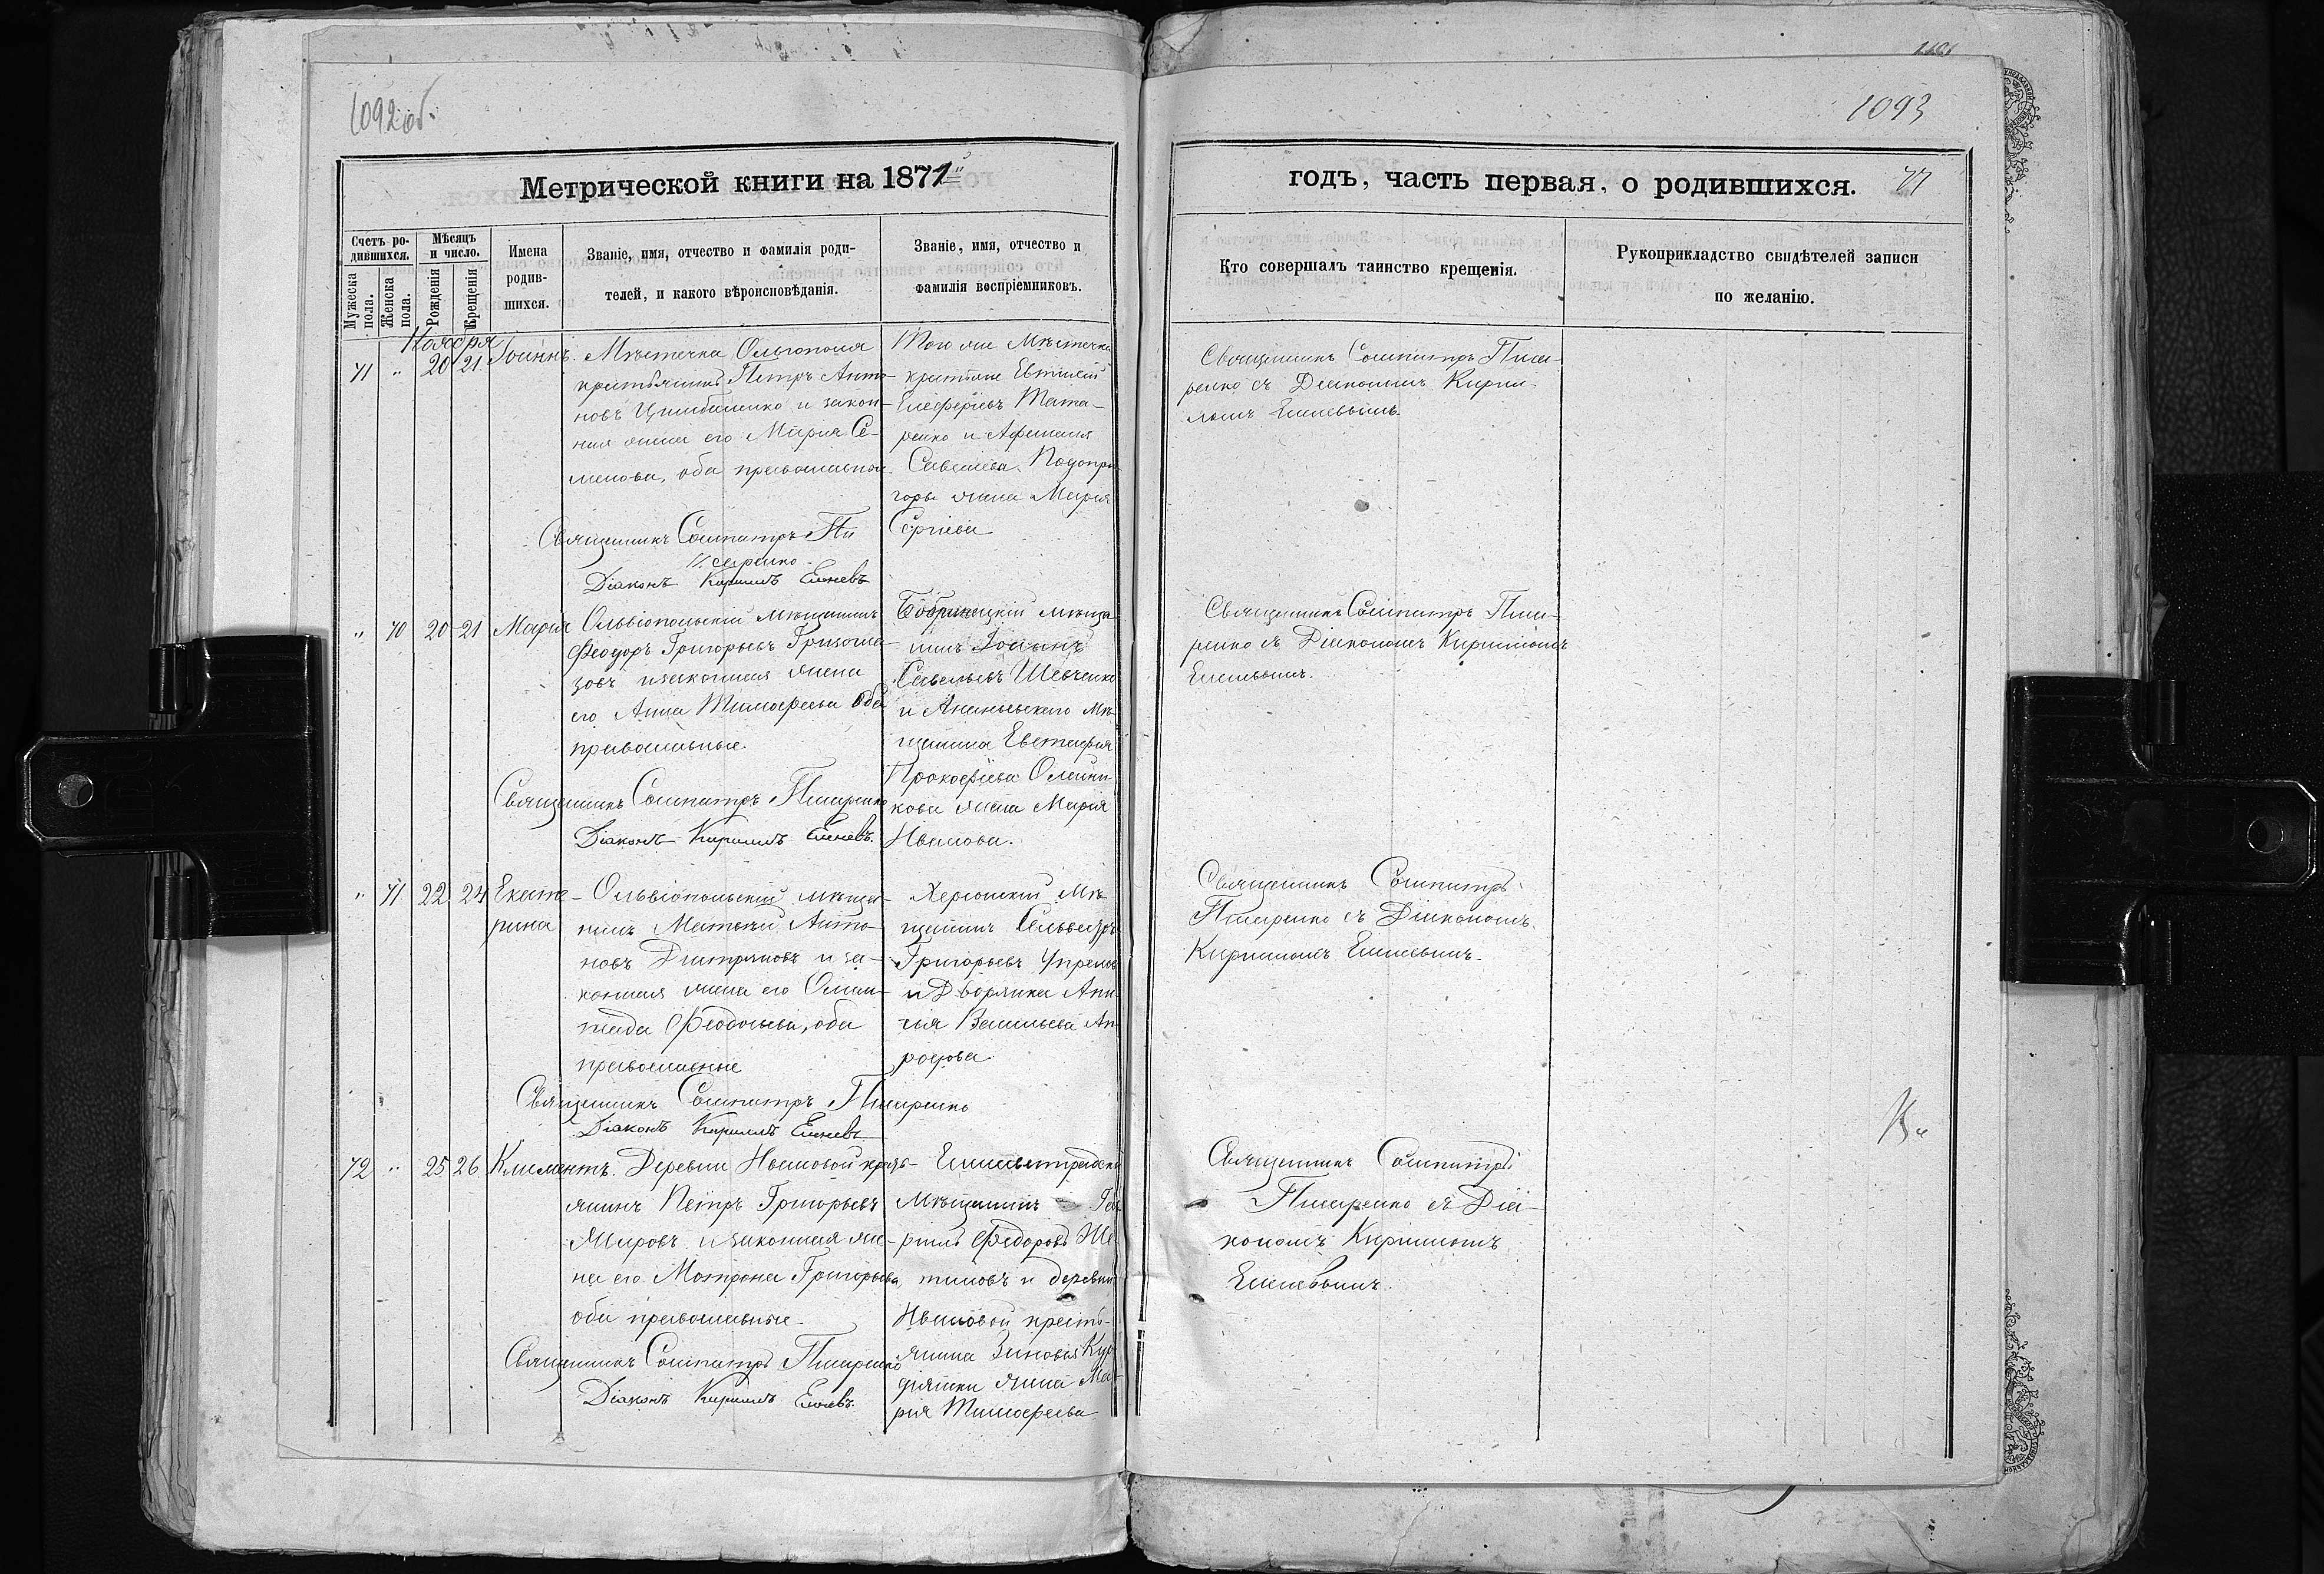 1092 об.
1093
Метрической книги на 1871
годъ, часть первая, о родившихся. 77
Счетъ ро-
дившихся.
Мужеска пола.
Женска пола.
Мѣсяцъ
и число.
Рожденія
Крещенія
Имена
родив-
шихся.
Званіе, имя, отчество и фамилія роди-
телей, и какого вѣроисповѣданія.
Званіе, имя, отчество и
фамилія воспріемниковъ.
Кто совершалъ таинство крещенія.
Рукоприкладство свидѣтелей записи
по желанію.
Ноября
71 " 20 21 Іоаннъ
Мѣстечка Ольгополя
крестьянинъ Петръ Анто-
новъ и закон-
ная жена его Марія Се-
менова, оба православные
Священникъ Сосипатръ Пи
саренко
Діаконъ Кириллъ Еленевъ
Того же Мѣстечка
крестьяне Евтихій
Елефѣріевъ Тата-
ренко и
Савелиева Подопри-
горы жена Марія
Сергіева
Священникъ Сосипатръ Писа-
ренко съ Діакономъ Кирил-
ломъ Еленевымъ.
" 70 20 21 Марія
Ольвіопольскій мѣщанинъ
Феодоръ Григорьевъ Гризогла-
зовъ и законная жена
его Анна Тимофеева оба
православные.
Священникъ Сосипатръ Писаренко
Діаконъ Кириллъ Еленевъ.
Бобринецкій мѣща-
нинъ Іоаннъ
Савельевъ Шевченко
и Ананьевскаго мѣ-
щанина Евстафія
Прокофіева Олейни-
кова жена Марія
Иванова.
Священникъ Сосипатръ Писа-
ренко съ Діакономъ Кирилломъ
Еленевымъ.
" 71 22 24 Екате-
рина
Ольвіопольскій мѣща-
нинъ Матвѣй Анто-
новъ и за-
конная жена его Олим-
піада Феодосіева, оба
православные
Священникъ Сосипатръ Писаренко
Діаконъ Кириллъ Еленевъ
Херсонскій Мѣ-
щанинъ Сильвестръ
Григорьевъ
и Дворянка
Васильева
Священникъ Сосипатръ
Писаренко съ Діакономъ
Кирилломъ Еленевымъ.
72 " 25 26 Климентъ.
Деревни Ивановой кресть-
янинъ Петръ Григорьевъ
Мировъ и законная же-
на его Матрона Григорьева,
оба православные.
Священникъ Сосипатръ Писаренко
Діаконъ Кириллъ Еленевъ.
Елисаветградскій
Мѣщанинъ
Федоровъ
и деревни
Ивановой кресть-
янина Зиновія
жена Ма-
рія Тимофеева
Священникъ Сосипатръ
Писаренко съ Діа-
кономъ Кирилломъ
Еленевымъ.